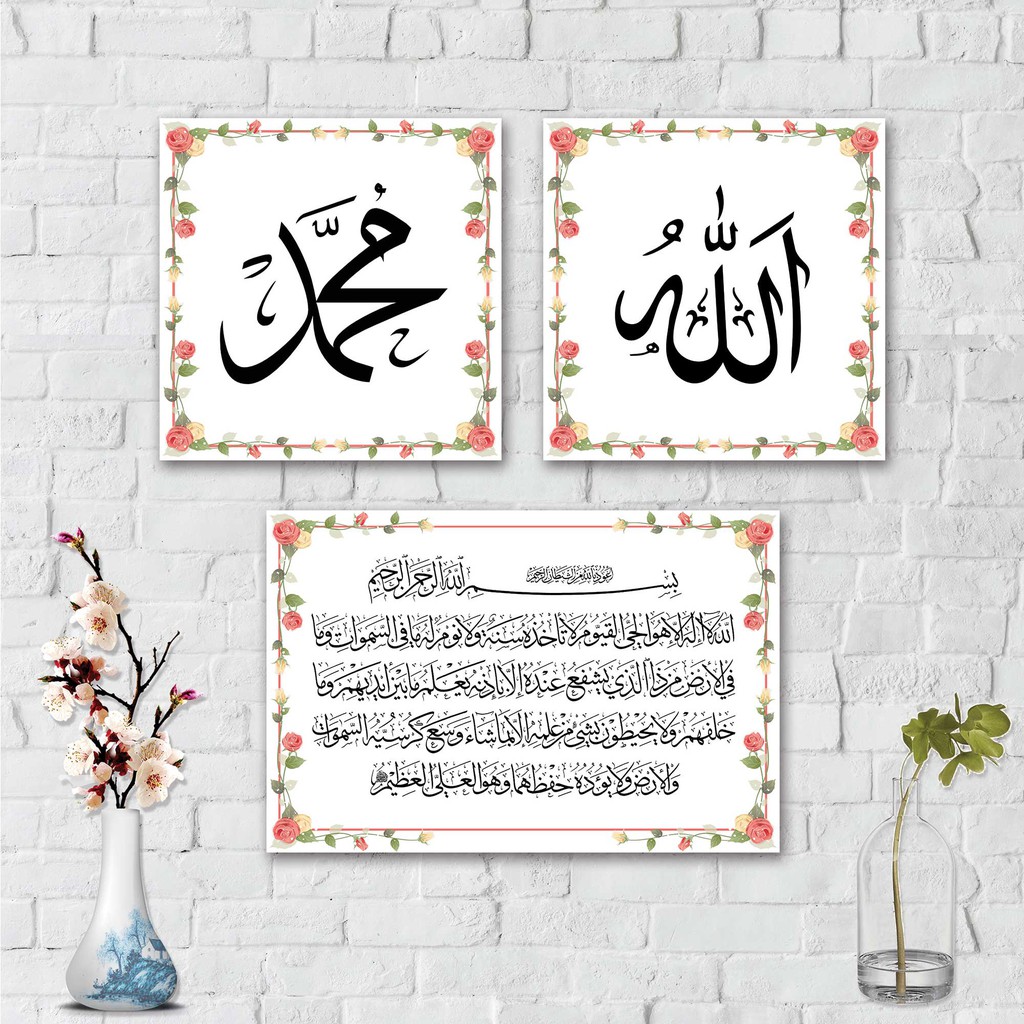 اَللهُ
مُحَمَّد
اعوذ بالله من الشيطان الرجيم
بِسْمِ اللهِ الرَّحْمٰنِ الرَّحِيْمِ
اَللهُ لَا اِلٰهَ اِلَّا هُوَ الْحَيُّ الْقَيُّوْمُ لَا تَأْخُذُهٗ سِنَةٌ وَلَا نَوْمٌ لَهٗ مَا فِي السَّمٰوَاتِ وَمَا
فِي الْاَرْضِ مَنْ ذَا الَّذِيْ يَشْفَعُ عِنْدَهٗ اِلَّا بِاِذْنِهٖ يَعْلَمُ مَا بَيْنَ اَيْدِيْهِمْ وَمَا
خَلْفَهُمْ وَلَا يُحِيْطُوْنَ بِشَيْءٍ مِنْ عِلْمِهٖ اِلَّا بِمَا شَاءَ وَسِعَ كُرْسِيُّهُ السَّمٰوَاتِ
وَالْاَرْضَ وَلَا يَؤُدُهٗ حِفْظُهُمَا وَهُوَ الْعَلِيُّ الْعَظِيْمُ